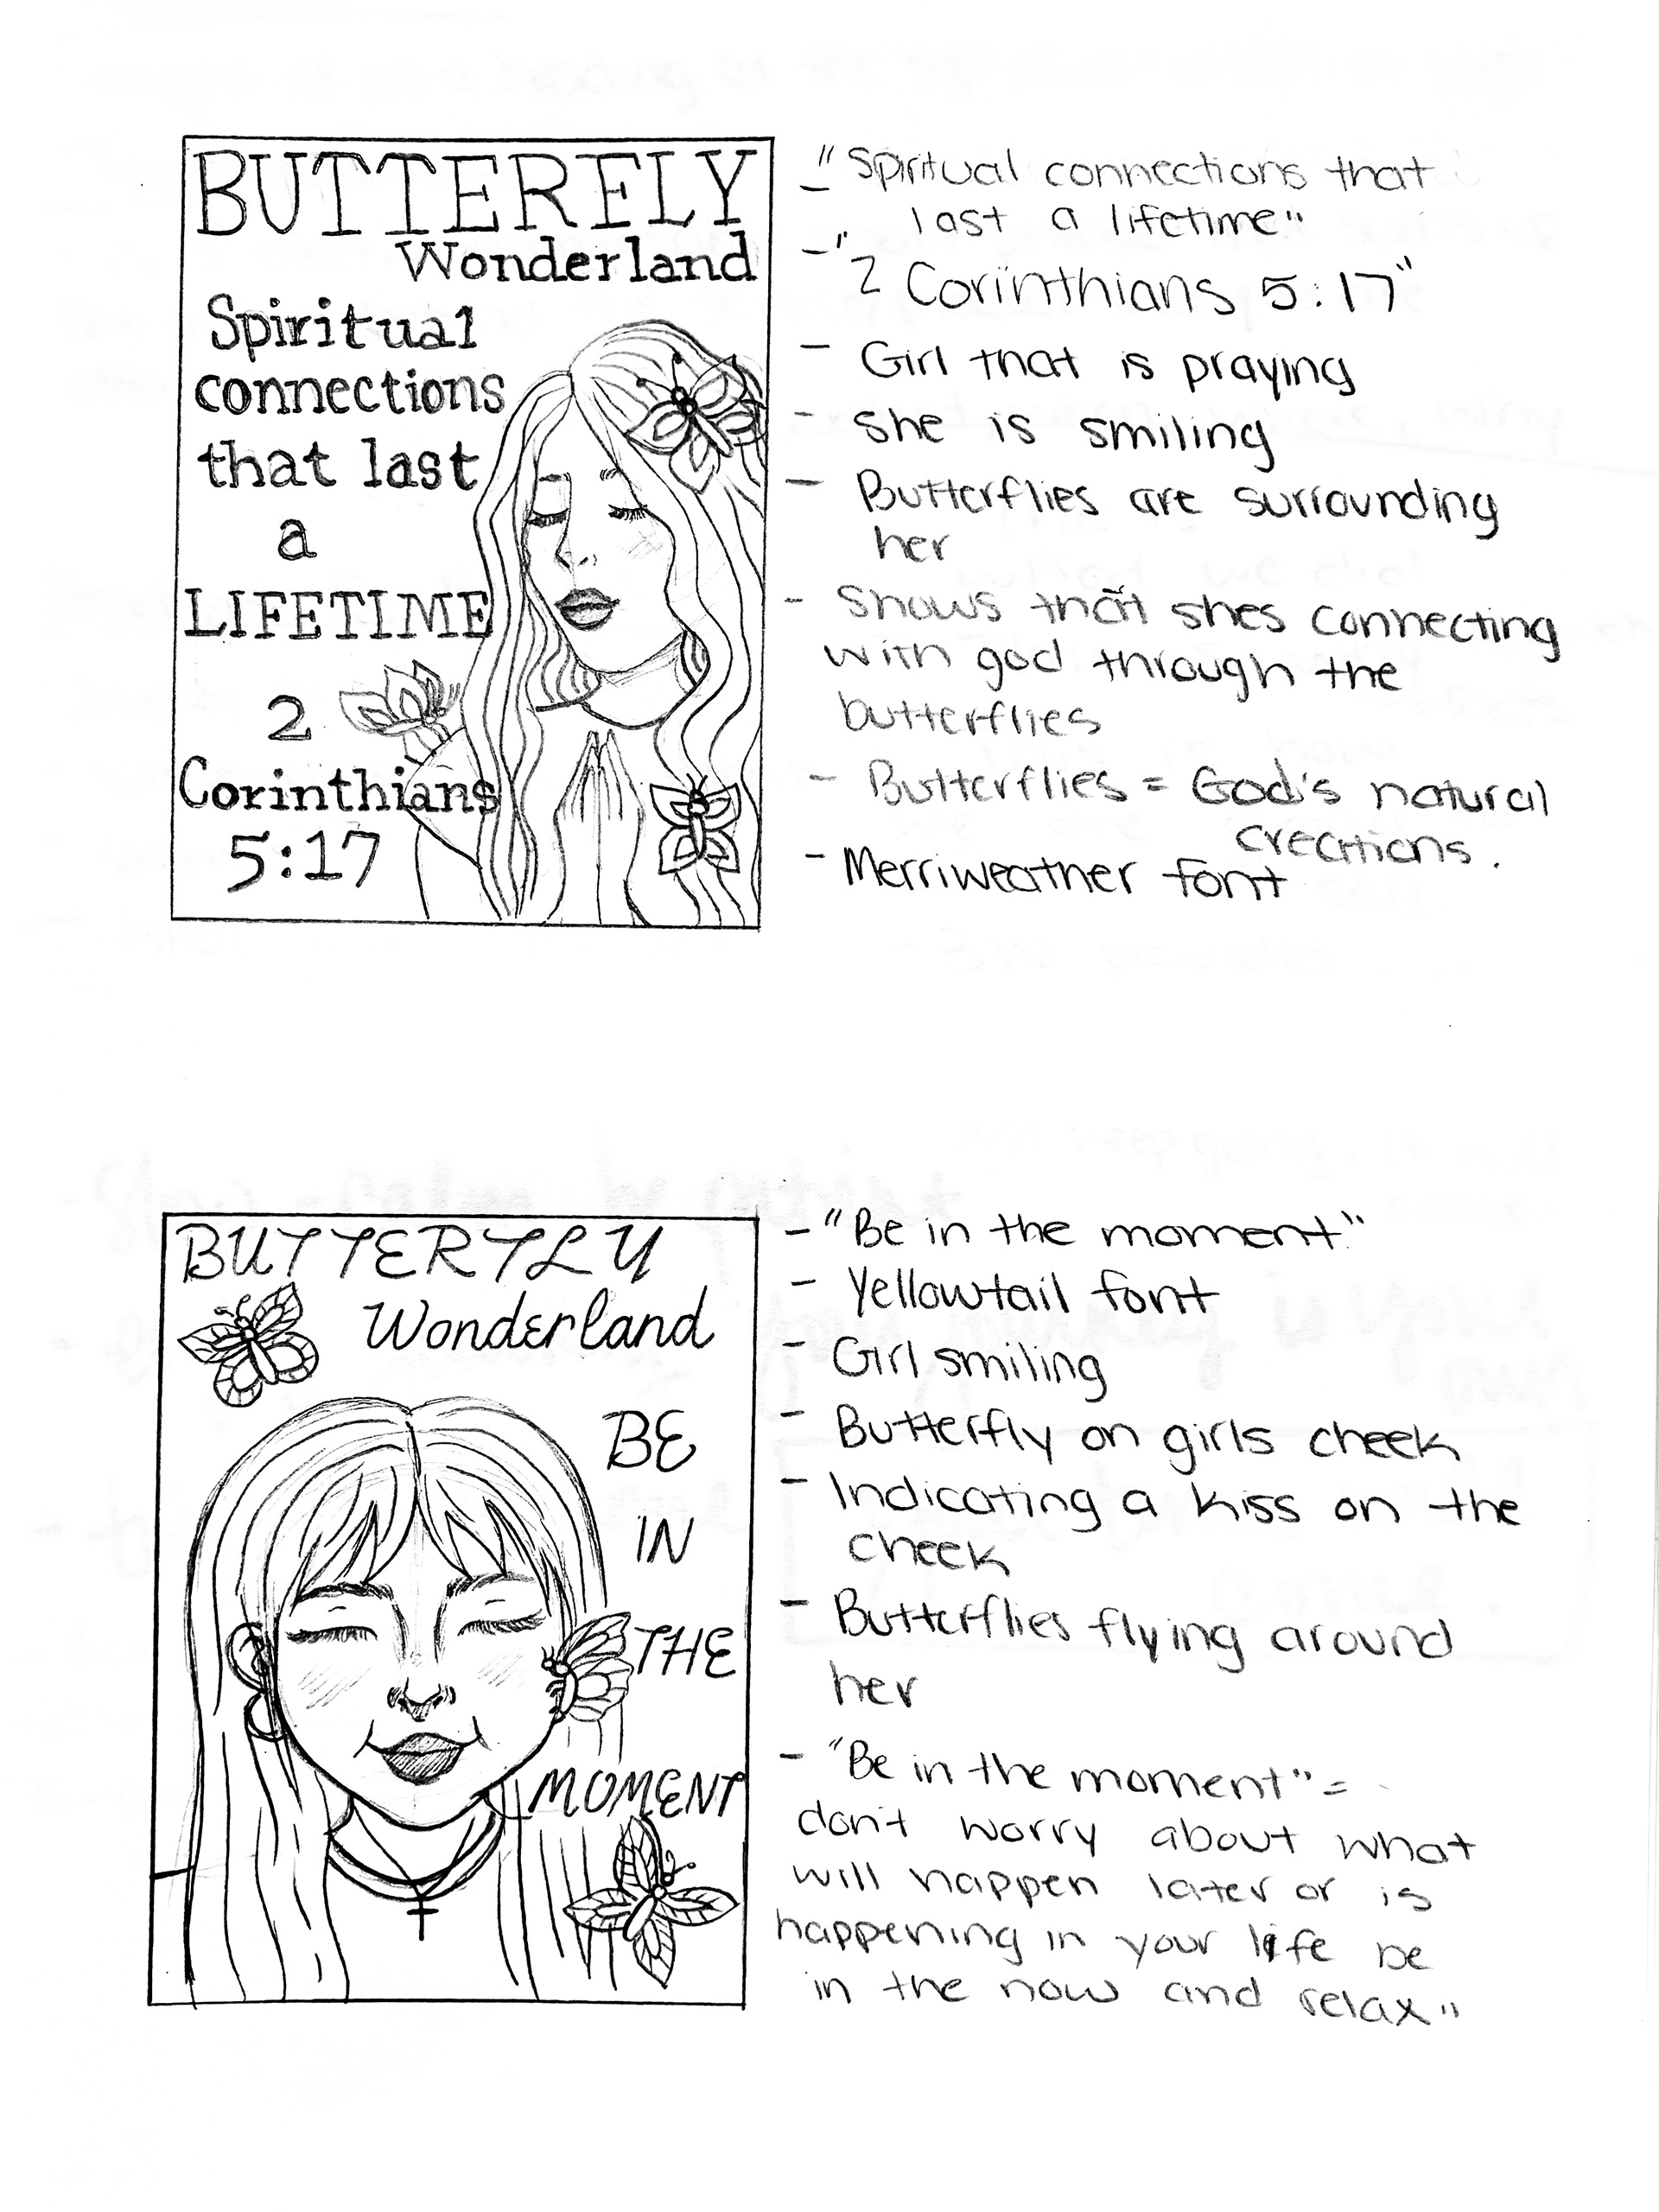 BUTTERFLY
Wonderland
Spiritual
connections
that last
a
LIFETIME
2
Corinthians
5:17
- "Spiritual connections that
last a lifetime"
- "2 Corinthians 5:17"
- Girl that is praying
- she is smiling
- Butterflies are surrounding
her
- Shows that shes connecting
with god through the
butterflies
- Butterflies = God's natural
creations.
- Merriweather font
BUTTERFLY
Wonderland
BE
IN
THE
MOMENT
- "Be in the moment"
- Yellowtail font
- Girl smiling
- Butterfly on girls cheek
- Indicating a kiss on the
cheek
- Butterflies flying around
her
- "Be in the moment" =
don't worry about what
will happen later or is
happening in your life be
in the now and relax"